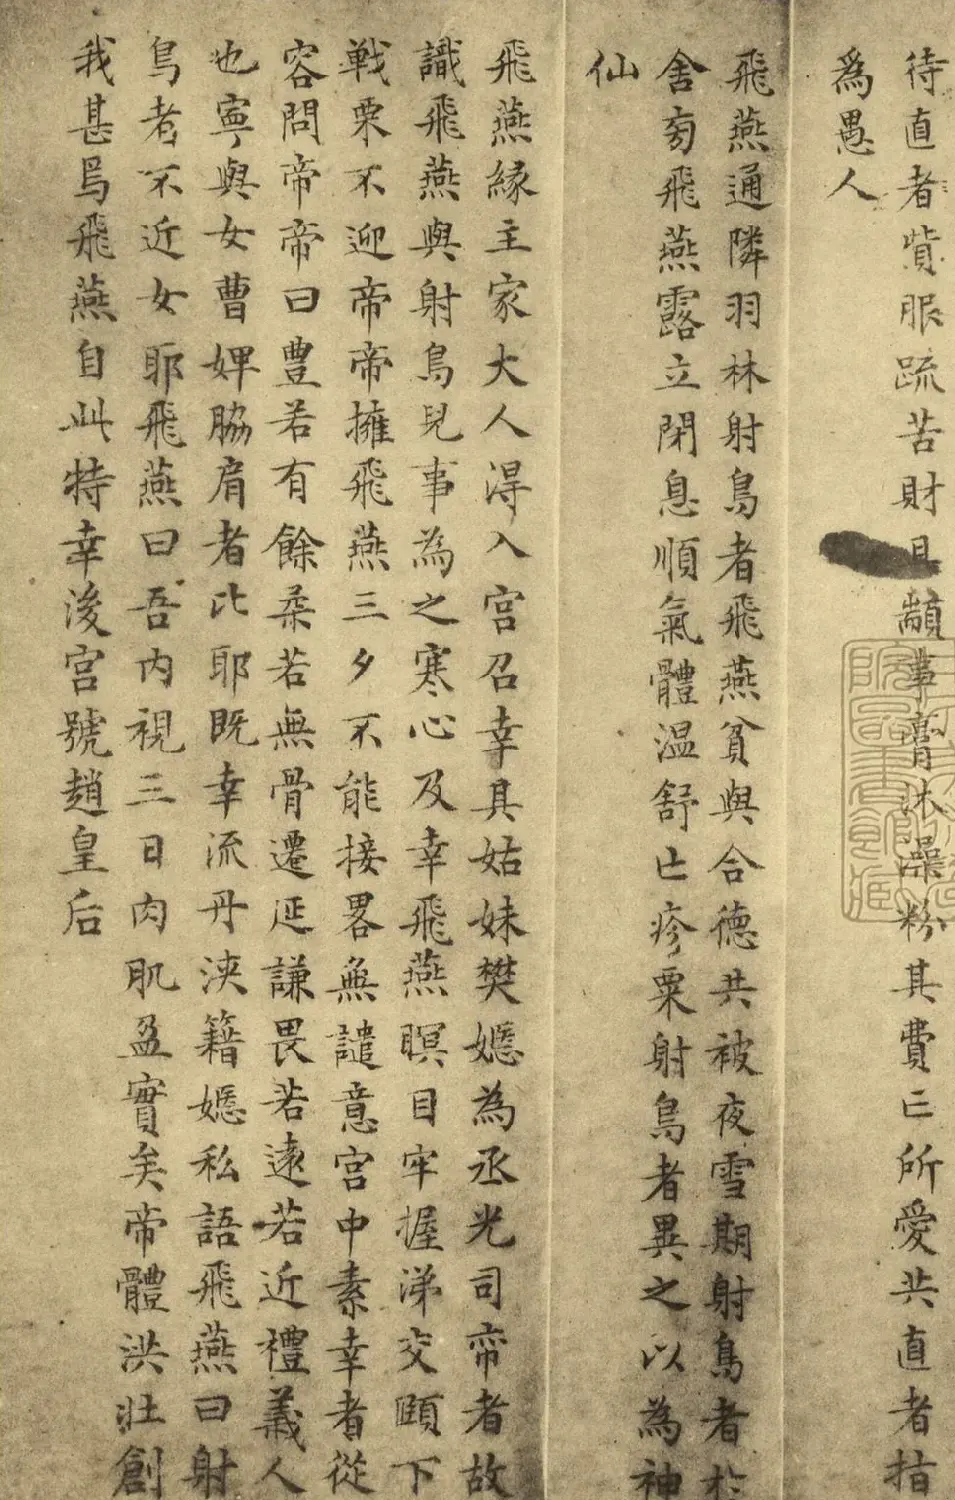 待直者貲服疏苦財且顓事膏沐澡粉其費亡所愛共直者指
為愚人
飛燕通隣羽林射鳥者飛燕貧與合德共被夜雪期射鳥者於
舍旁飛燕露立閉息順氣體温舒亡疹粟射鳥者異之以為神
仙
飛燕緣主家大人得入宮召幸其姑妹樊嫕為丞光司帟者故
識飛燕與射鳥兒事為之寒心及幸飛燕瞑目牢握涕交頤下
戰栗不迎帝帝擁飛燕三夕不能接畧無譴意宮中素幸者從
容問帝帝曰豊若有餘柔若無骨遷延謙畏若遠若近禮義人
也寧與女曹婢脇肩者比耶既幸流丹浹籍嫕私語飛燕曰射
鳥者不近女耶飛燕曰吾内視三日肉肌盈實矣帝體洪壯創
我甚焉飛燕自此特幸後宮號趙皇后